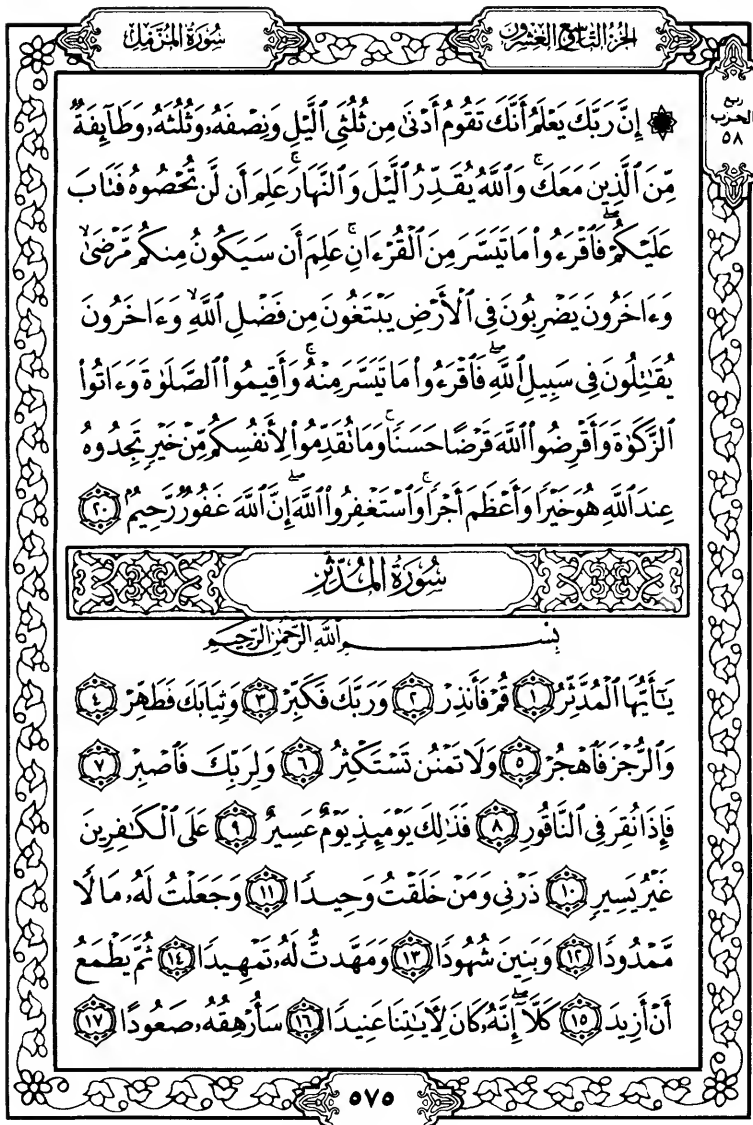 الجزء التاسع والعشرون
سورة المزمل
ربع
الحزب
٥٨
۞ إِنَّ رَبَّكَ يَعْلَمُ أَنَّكَ تَقُومُ أَدْنَىٰ مِن ثُلُثَيِ ٱلَّيْلِ وَنِصْفَهُۥ وَثُلُثَهُۥ وَطَآئِفَةٌ
مِّنَ ٱلَّذِينَ مَعَكَ ۚ وَٱللَّهُ يُقَدِّرُ ٱلَّيْلَ وَٱلنَّهَارَ ۚ عَلِمَ أَن لَّن تُحْصُوهُ فَتَابَ
عَلَيْكُمْ ۖ فَٱقْرَءُوا۟ مَا تَيَسَّرَ مِنَ ٱلْقُرْءَانِ ۚ عَلِمَ أَن سَيَكُونُ مِنكُم مَّرْضَىٰ ۙ
وَءَاخَرُونَ يَضْرِبُونَ فِى ٱلْأَرْضِ يَبْتَغُونَ مِن فَضْلِ ٱللَّهِ ۙ وَءَاخَرُونَ
يُقَٰتِلُونَ فِى سَبِيلِ ٱللَّهِ ۖ فَٱقْرَءُوا۟ مَا تَيَسَّرَ مِنْهُ ۚ وَأَقِيمُوا۟ ٱلصَّلَوٰةَ وَءَاتُوا۟
ٱلزَّكَوٰةَ وَأَقْرِضُوا۟ ٱللَّهَ قَرْضًا حَسَنًا ۚ وَمَا تُقَدِّمُوا۟ لِأَنفُسِكُم مِّنْ خَيْرٍ تَجِدُوهُ
عِندَ ٱللَّهِ هُوَ خَيْرًا وَأَعْظَمَ أَجْرًا ۚ وَٱسْتَغْفِرُوا۟ ٱللَّهَ ۖ إِنَّ ٱللَّهَ غَفُورٌ رَّحِيمٌۢ ٢٠
سُورَةُ الْمُدَّثِّرِ
بِسْمِ ٱللَّهِ ٱلرَّحْمَٰنِ ٱلرَّحِيمِ
يَٰٓأَيُّهَا ٱلْمُدَّثِّرُ ١ قُمْ فَأَنذِرْ ٢ وَرَبَّكَ فَكَبِّرْ ٣ وَثِيَابَكَ فَطَهِّرْ ٤
وَٱلرُّجْزَ فَٱهْجُرْ ٥ وَلَا تَمْنُن تَسْتَكْثِرُ ٦ وَلِرَبِّكَ فَٱصْبِرْ ٧
فَإِذَا نُقِرَ فِى ٱلنَّاقُورِ ٨ فَذَٰلِكَ يَوْمَئِذٍ يَوْمٌ عَسِيرٌ ٩ عَلَى ٱلْكَٰفِرِينَ
غَيْرُ يَسِيرٍ ١٠ ذَرْنِى وَمَنْ خَلَقْتُ وَحِيدًا ١١ وَجَعَلْتُ لَهُۥ مَالًا
مَّمْدُودًا ١٢ وَبَنِينَ شُهُودًا ١٣ وَمَهَّدتُّ لَهُۥ تَمْهِيدًا ١٤ ثُمَّ يَطْمَعُ
أَنْ أَزِيدَ ١٥ كَلَّآ ۖ إِنَّهُۥ كَانَ لِـَٔايَٰتِنَا عَنِيدًا ١٦ سَأُرْهِقُهُۥ صَعُودًا ١٧
٥٧٥